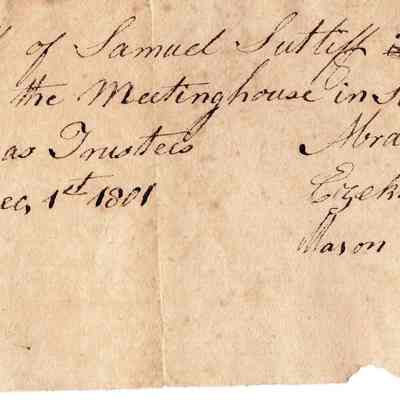 of Samuel Sutliff
the Meetinghouse in
as Trustees Abra
ec, 1st 1801 Ezek
Mason